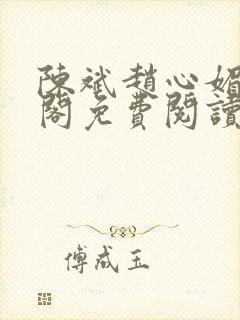 陳斌趙心媚
閣免費閱讀
傅成玉